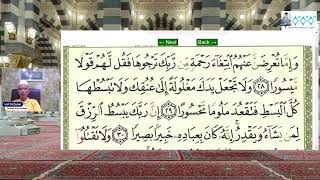 ← Next
Back →
وَإِمَّا تُعْرِضَنَّ عَنْهُمُ ٱبْتِغَآءَ رَحْمَةٍ مِّن رَّبِّكَ تَرْجُوهَا فَقُل لَّهُمْ قَوْلًا
مَّيْسُورًا ٢٨ وَلَا تَجْعَلْ يَدَكَ مَغْلُولَةً إِلَىٰ عُنُقِكَ وَلَا تَبْسُطْهَا
كُلَّ ٱلْبَسْطِ فَتَقْعُدَ مَلُومًا مَّحْسُورًا ٢٩ إِنَّ رَبَّكَ يَبْسُطُ ٱلرِّزْقَ
لِمَن يَشَآءُ وَيَقْدِرُ إِنَّهُۥ كَانَ بِعِبَادِهِۦ خَبِيرًۢا بَصِيرًا ٣٠ وَلَا تَقْتُلُوٓا۟